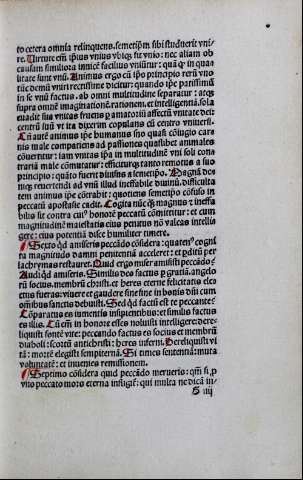 to cetera omnia relinquens. semetip̄m sibi studuerit vni
re. Uirtute em̄ ip̄ius vnius vbiq̄ fit vnio: nec aliam ob
causam similiora inuicē facilius vniūtur: quā q̄ in qua
litate sunt vnū. Animus ergo cū ip̄o principio rerū vno
tūc demū vniri rectissime dicitur: quando ip̄e p̄atissimū
in se vnū factus. ab omni multitudine separatur: atq̄
supra omnē imaginationē. rationem. et intelligentiā. sola
euadit sua vnitas fruens ⁊ amatoriū affectū vnitate dei:
centrū suū vt ita dicerim copulans cū centro vniuersi.
Cū aūt animus ip̄e humanus suo quasi cōiugio carna
nis male compatiens ad passiones quaslibet animales
cōuertitur: iam vnitas ip̄a in multitudinē vni soli con
trariā male cōmutatur: efficiturq̄ tanto remotus a suo
principio: quāto fuerit diuisus a semetip̄o. Magna dos
neq̄ reuertendi ad vnū illud ineffabile diuinū. difficulta
tem animus ip̄e cōtrahit: quotiens semetip̄o cōfuso in
peccatū apostasie cadit. Cogita nūc q̄ magnus ⁊ ineffa
bilis sit contra cui᷒ honorē peccatū cōmittitur: et cum
magnitudinē maiestatis eius penitus nō valeas intelli
gere: eius potentiā disce humiliter timere.
Sexto qd̄ amiseris peccādo cōsidera: quaten᷒ cogni
ta magnitudo damni penitentiā acceleret: et p̄ditū per
lachrymas restauret. Quid ergo miser amisisti peccādo?
Audi qd̄ amiseris. Similis deo factus p̄ gratiā. angelo
rū socius. membrū christi. et heres eterne felicitatis ele
ctus fueras: viuere et gaudere sine fine in bonis diu cum
omnibus sanctis debuisti. Sed qd̄ factū est te peccante?
Cōparatus es iumentis insipientibus: et similis factus
es illis. Cū em̄ in honore esses noluisti intelligere dere
liquisti fontē vite: peccando factus es socius et membrū
diaboli: scortū antichristi: heres inferni. Perdiquisti vi
tā: mortē elegisti sempiternā. Si times sententiā: muta
voluntatē: et inuenies remissionem.
Septimo cōsidera quid peccādo merueris: qm̄ si p̄
vno peccato mors eterna infligit᷒: qui multa ne dicā in
S iiij